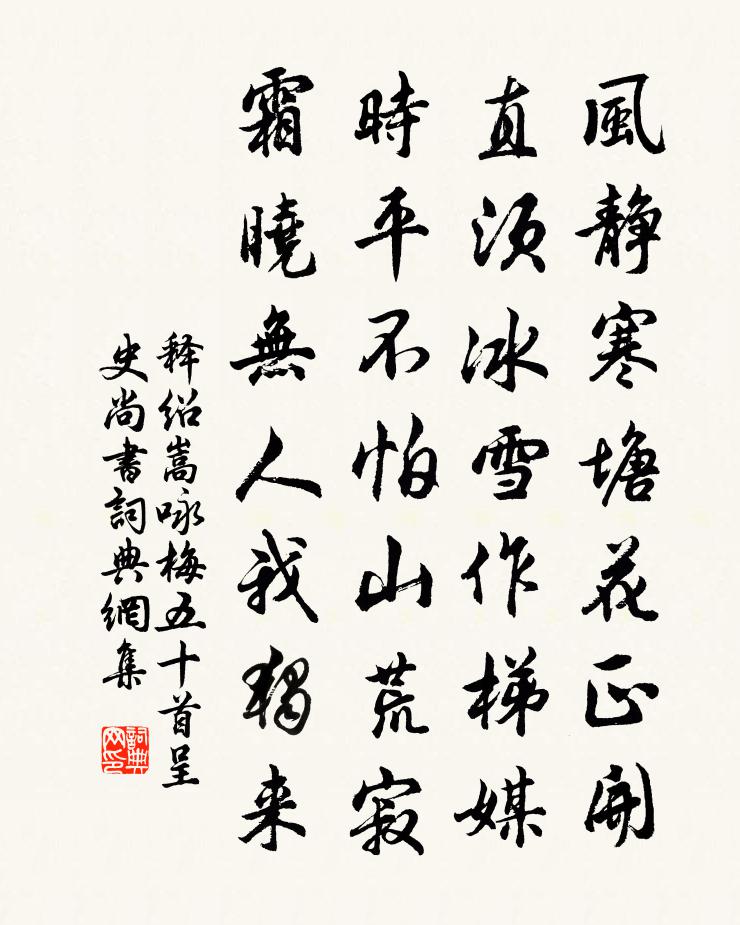 風靜寒塘花正開
直須冰雪作梯媒
時平不怕山荒寂
霜曉無人我獨来
释绍嵩咏梅五十首呈
史尚書詞典網集
詞典
网印